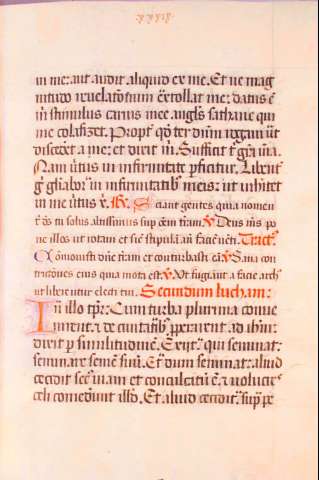 in me: aut audit aliquid ex me. Et ne mag
nitudo revelationum extollat me: datus ē
m̄ stimulus carnis mee angl̄s sathane qui
me colafizet. Propt̄ qd̄ ter dn̄m rogavi ut
discedet a me: et dixit m̄. Sufficit t̄ gr̄a m̄a.
Nam virtus in infirmitate p̄ficitur. Libent̄
g̊ gl̄iabor in infirmitatib meis: ut inhitet
in me virtus x̄. Sciant gentes quia nomen
t̄ ds̄ tu solus altissimus sup om̄ terrā. V Deus ms̄ po
ne illos ut rotam et sic̄ stipulā añ faciē vēti. Tract̄.
Commovisti dn̄e terram et conturbasti eā V Sana con
tricōnes eius quia mota est V Ut fugiant a facie arc̄
ut liberentur electi tui. Secundum lucham:
In illo tp̄r: Cum turba plurima conve
nirent: et de civitatib properarent ad ihm̄:
dixit p̄ similitudinē. Exiit qui seminat:
seminare semē suū. Et dum seminat: aliud
cecidit sec̄ viam et conculcatū ē: et volucres
celi comederunt illd̄. Et aliud cecidit sup̄ pe